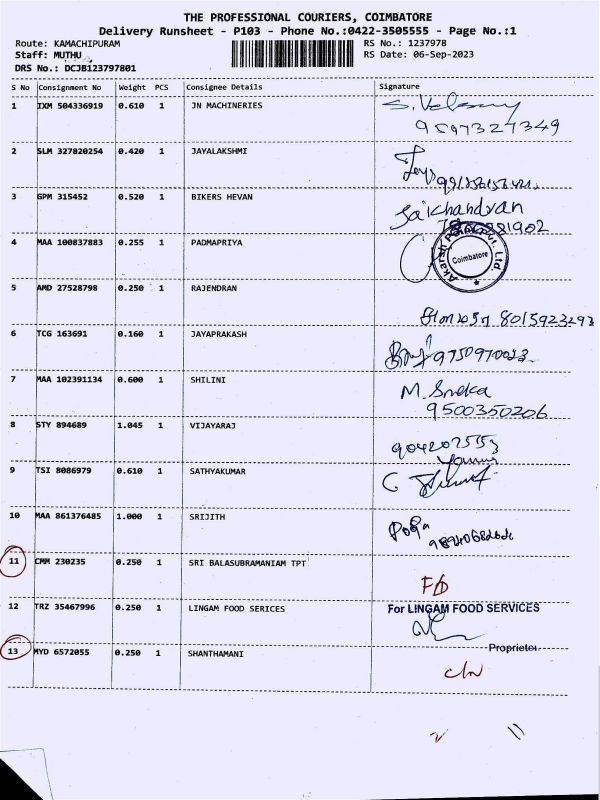 THE PROFESSIONAL COURIERS, COIMBATORE
Delivery Runsheet - P103 - Phone No.:0422-3505555 - Page No.:1
Route: KAMACHIPURAM RS No.: 1237978
Staff: MUTHU RS Date: 06-Sep-2023
DRS No.: DCJB123797801
S No Consignment No Weight PCS Consignee Details Signature
1 IXM 504336919 0.610 1 JN MACHINERIES
9597327349
2 SLM 327820254 0.420 1 JAYALAKSHMI
3 GPM 315452 0.520 1 BIKERS HEVAN
Saichandran
4 MAA 100837883 0.255 1 PADMAPRIYA
Akarsh Pvt. Ltd.
Coimbatore
5 AMD 27528798 0.250 1 RAJENDRAN
8015923293
6 TCG 163691 0.160 1 JAYAPRAKASH
7 MAA 102391134 0.600 1 SHILINI
M. Sneka
9500350206
8 STY 894689 1.045 1 VIJAYARAJ
9 TSI 8086979 0.610 1 SATHYAKUMAR
10 MAA 861376485 1.000 1 SRIJITH
11 CMM 230235 0.250 1 SRI BALASUBRAMANIAM TPT
12 TRZ 35467996 0.250 1 LINGAM FOOD SERICES For LINGAM FOOD SERVICES
Proprietor
13 MYD 6572055 0.250 1 SHANTHAMANI